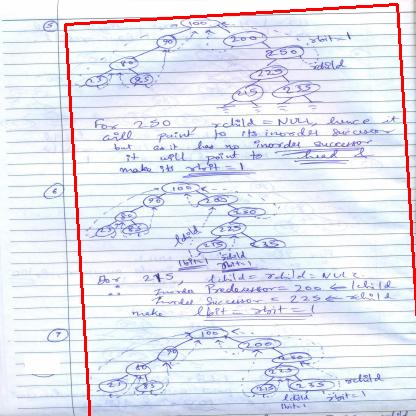 5
100
90
200
rbit = 1
80
250
rchild
225
85
215
235
For 250 rchild = NULL, hence it
will point to its inorder successor
but as it has no inorder successor
it will point to head &
make its rbit = 1
6
100
90
200
80
250
85
225
lchild
215
235
lbit=1
rbit=1
For 215, lchild = rchild = NULL
∴ Inorder Predecessor = 200 ← lchild
Inorder Successor = 225 ← rchild
make lbit = rbit = 1
7
100
90
200
80
250
225
85
215
235
rchild
lchild
lbit=1
rbit=1